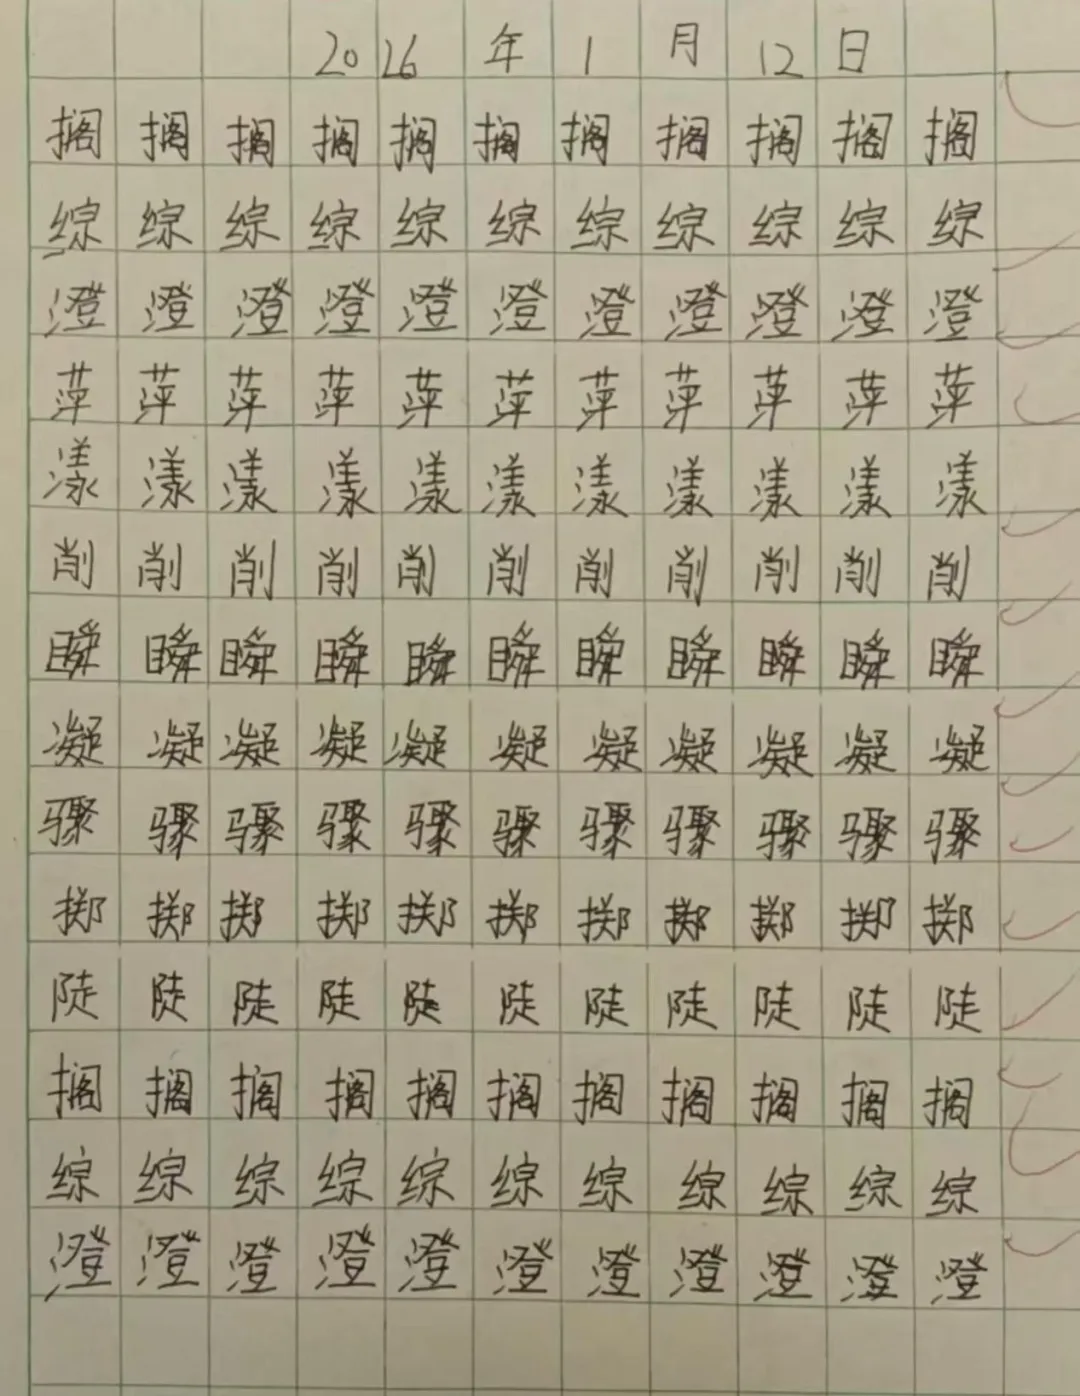 2026年1月12日
搁搁搁搁搁搁搁搁搁搁搁
综综综综综综综综综综综
澄澄澄澄澄澄澄澄澄澄澄
萍萍萍萍萍萍萍萍萍萍萍
漾漾漾漾漾漾漾漾漾漾漾
削削削削削削削削削削削
瞬瞬瞬瞬瞬瞬瞬瞬瞬瞬瞬
凝凝凝凝凝凝凝凝凝凝凝
骤骤骤骤骤骤骤骤骤骤骤
掷掷掷掷掷掷掷掷掷掷掷
陡陡陡陡陡陡陡陡陡陡陡
搁搁搁搁搁搁搁搁搁搁搁
综综综综综综综综综综综
澄澄澄澄澄澄澄澄澄澄澄